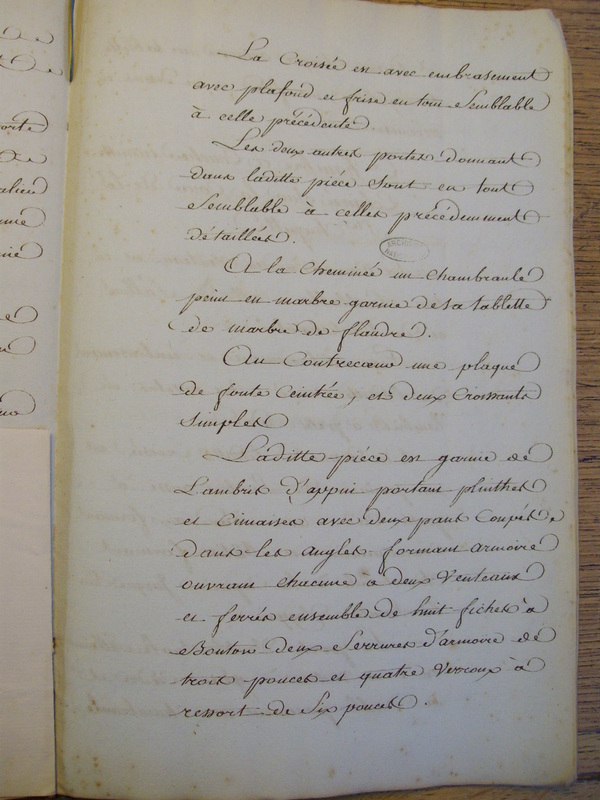 La Croisée est avec embrasement
avec plafond et frise en tour semblable
à celle précédente
Les deux autres portes donnant
dans laditte piéce sont en tout
semblable à celles précédemment
détaillées.
A la Cheminée un Chambranle
peint en marbre garnie de sa tablette
de marbre de flandre.
Au Contrecœur une plaque
de fonte Ceintrée, et deux Croissants
simples
Laditte piéce est garnie de
Lambris d'appui portant plinthes
et Cimaises avec deux pans Coupés
dans les angles formant armoire
ouvrant chacune à deux Venteaux
et ferrés ensemble de huit fiches à
Bouton deux Serrures d'armoire de
trois pouces et quatre Verroux à
ressort de Six pouces.
orte